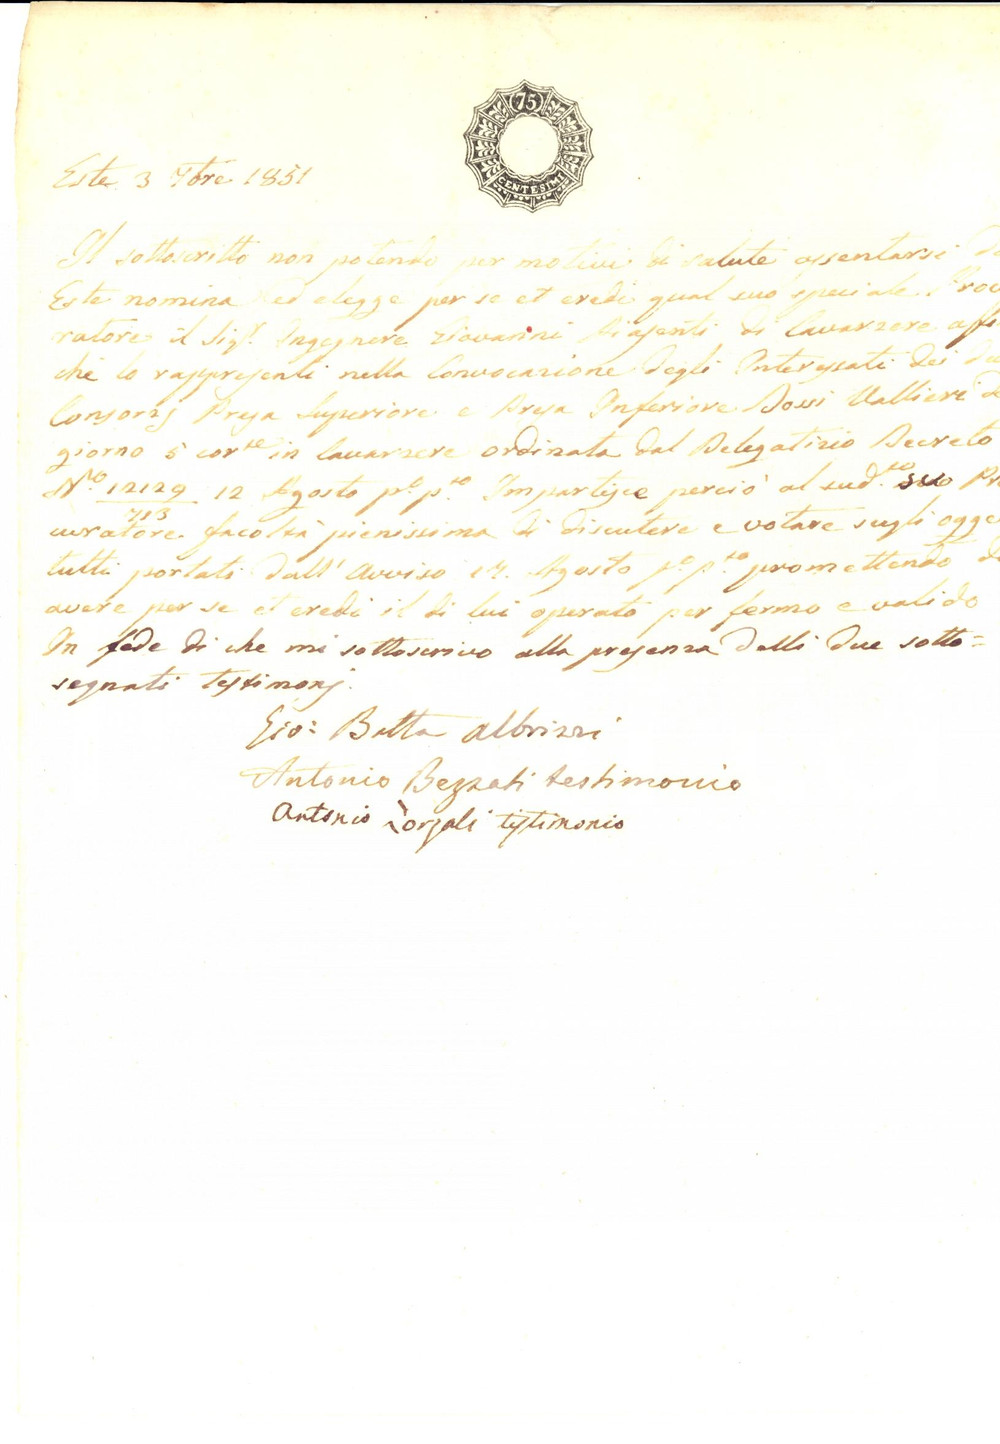 75
CENTESIMI
Este 3 7bre 1851
Il sottoscritto non potendo per motivi di salute assentarsi da
Este nomina ed elegge per se et eredi qual suo speciale Procu
ratore il Sigr. Ingegnere Giovanni di Cavarzere affin
chè lo rappresenti nella Convocazione degli Interessati dei due
Consorzj Presa Superiore e Presa Inferiore Dossi Vallieri del
giorno 5 corte in Cavarzere ordinata dal Delegatizio Decreto
No. 12129/713 12 Agosto po. pto. Impartisce perciò al sudto. suo Pro
curatore facoltà pienissima di discutere e votare sugli ogget
tutti portati dall' Avviso 17. Agosto po. pto. promettendo di
avere per se et eredi il di lui operato per fermo e valido
In fede di che mi sottoscrivo alla presenza delli due sotto=
segnati testimonj.
Gio: Batta Albrizzi
Antonio testimonio
Antonio testimonio